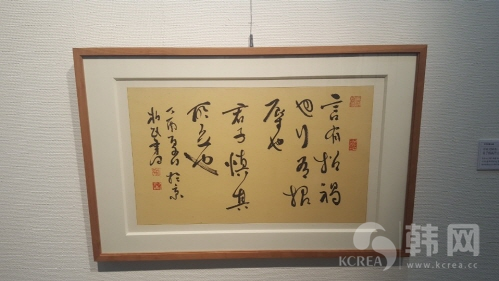 言有招禍
也行有招
辱也
君子慎其
所立也
韩网
KCREA www.kcrea.cc